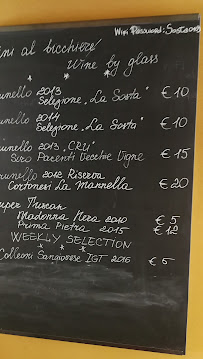 Wifi Password:
ini al bicchiere
Wine by glass
unello 2013
Selezione „La Sosta" € 10
unello 2014
Selezione „La Sosta" € 10
unello 2013 „CRU"
Siro Pacenti Vecchie Vigne € 15
unello 2012 Riserva
Cortonesi La Mannella € 20
uper Tuscan
Madonna Nera 2010 € 5
Prima Pietra 2015 € 12
WEEKLY SELECTION
Colleoni Sangiovese IGT 2016 € 5